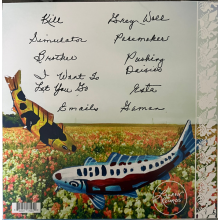 Kill
Simulator
Brother
I Want To
Let You Go
Emails
Grey Doll
Pacemaker
Pushing
Daisies
Esta
Gaman